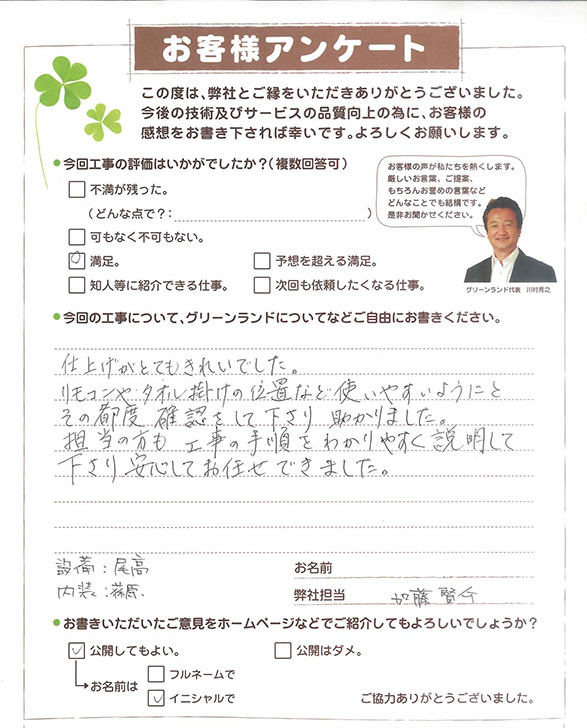 お客様アンケート
この度は、弊社とご縁をいただきありがとうございました。
今後の技術及びサービスの品質向上の為に、お客様の
感想をお書き下されば幸いです。よろしくお願いします。
今回工事の評価はいかがでしたか？（複数回答可）
不満が残った。
（どんな点で？：　　　）
可もなく不可もない。
満足。
予想を超える満足。
知人等に紹介できる仕事。
次回も依頼したくなる仕事。
お客様の声が私たちを熱くします。
厳しいお言葉、ご提案、
もちろんお誉めの言葉など
どんなことでも結構です。
是非お聞かせください。
グリーンランド代表　川村秀之
今回の工事について、グリーンランドについてなどご自由にお書きください。
仕上げがとてもきれいでした。
リモコンや・タオル掛けの位置など使いやすいようにと
その都度 確認をして下さり 助かりました。
担当の方も 工事の手順をわかりやすく説明して
下さり 安心してお任せできました。
設備：尾高
内装：藤原
お名前
弊社担当　加藤 賢介
お書きいただいたご意見をホームページなどでご紹介してもよろしいでしょうか？
公開してもよい。
公開はダメ。
お名前は
フルネームで
イニシャルで
ご協力ありがとうございました。